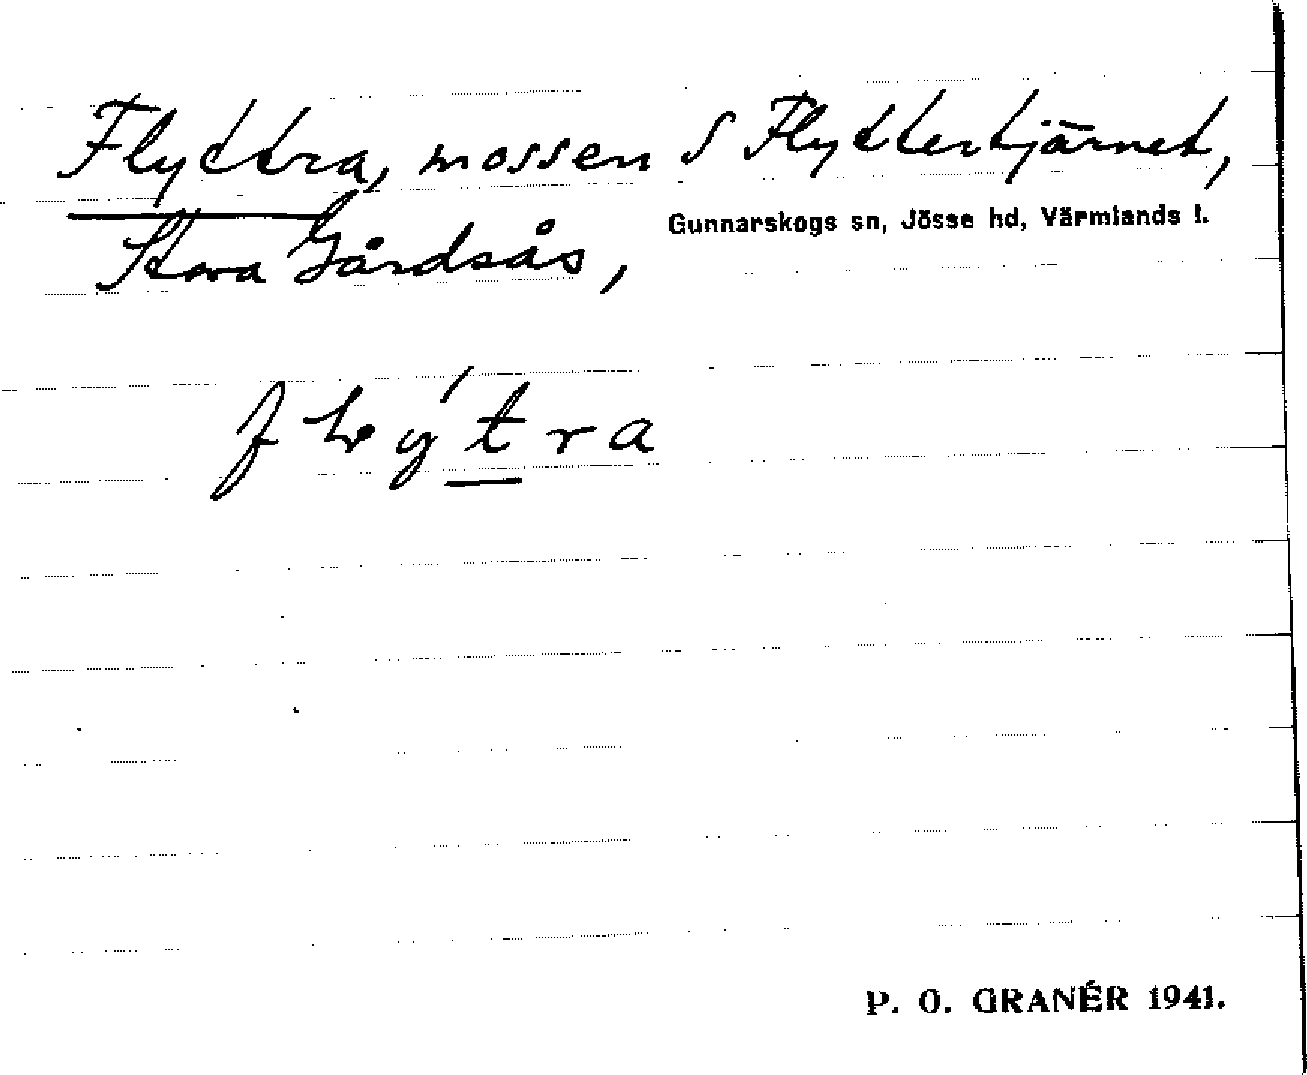 Flyttra, mossen S Flyttertjärnet,
Stora Gårdsås, Gunnarskogs sn, Jösse hd, Värmlands l.
fly´tra
P. O. GRANÉR 1941.